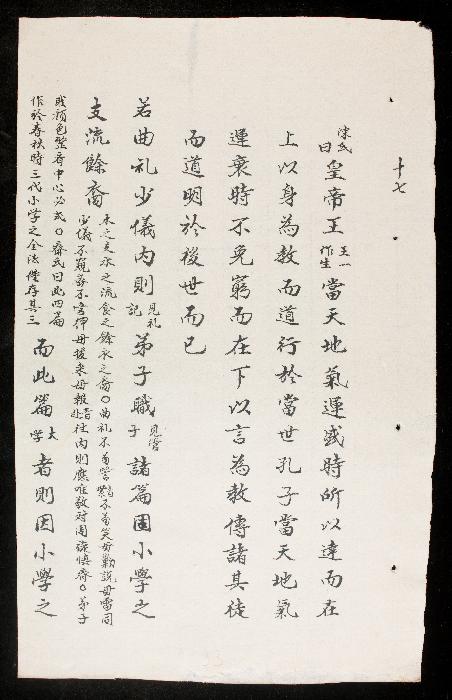 十七
陳氏曰皇帝王王一作生當天地氣運盛時所以達而在
上以身為教而道行於當世孔子當天地氣
運衰時不免窮而在下以言為教傳諸其徒
而道明於後世而已
若曲礼少儀內則見礼記弟子職見管子諸篇固小學之
支流餘裔木之支水之流食之餘衣之裔〇曲礼不苟訾不苟笑毋勦說毋雷同
少儀不窺密不旁狎毋拔來毋報往內則應唯敬對周旋慎齊〇弟子
職顏色整齊中心必式〇齊氏曰此四篇
作於春秋時三代小學之全法僅存其三
而此篇大學者則因小學之